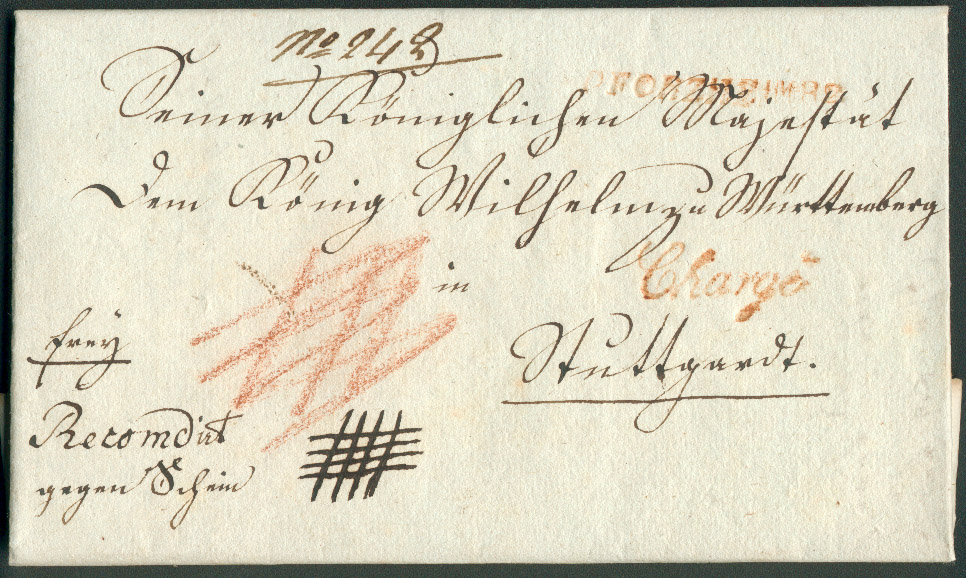 No 242
PFORZHEIM
Seiner Königlichen Majestät
Dem König Wilhelm zu Württemberg
in
Chargé
Stuttgardt.
frey
Recomdirt
gegen Schein